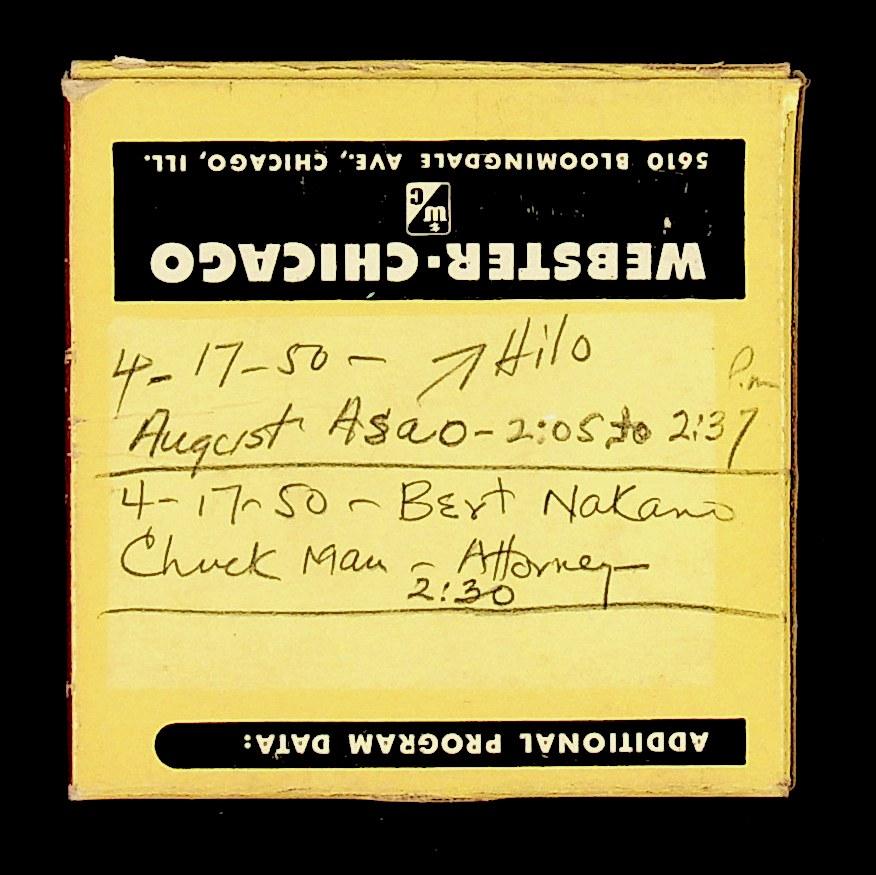 5610 BLOOMINGDALE AVE., CHICAGO, ILL.
WC
WEBSTER-CHICAGO
4-17-50 - Hilo
P.m
August Asao - 2:05 to 2:37
4-17-50 - Bert Nakano
Chuck Mau - Attorney
2:30
ADDITIONAL PROGRAM DATA: